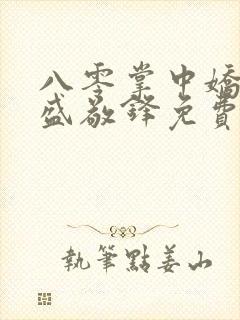 八零掌中嬌
盛敬鋒免費
執筆點姜山